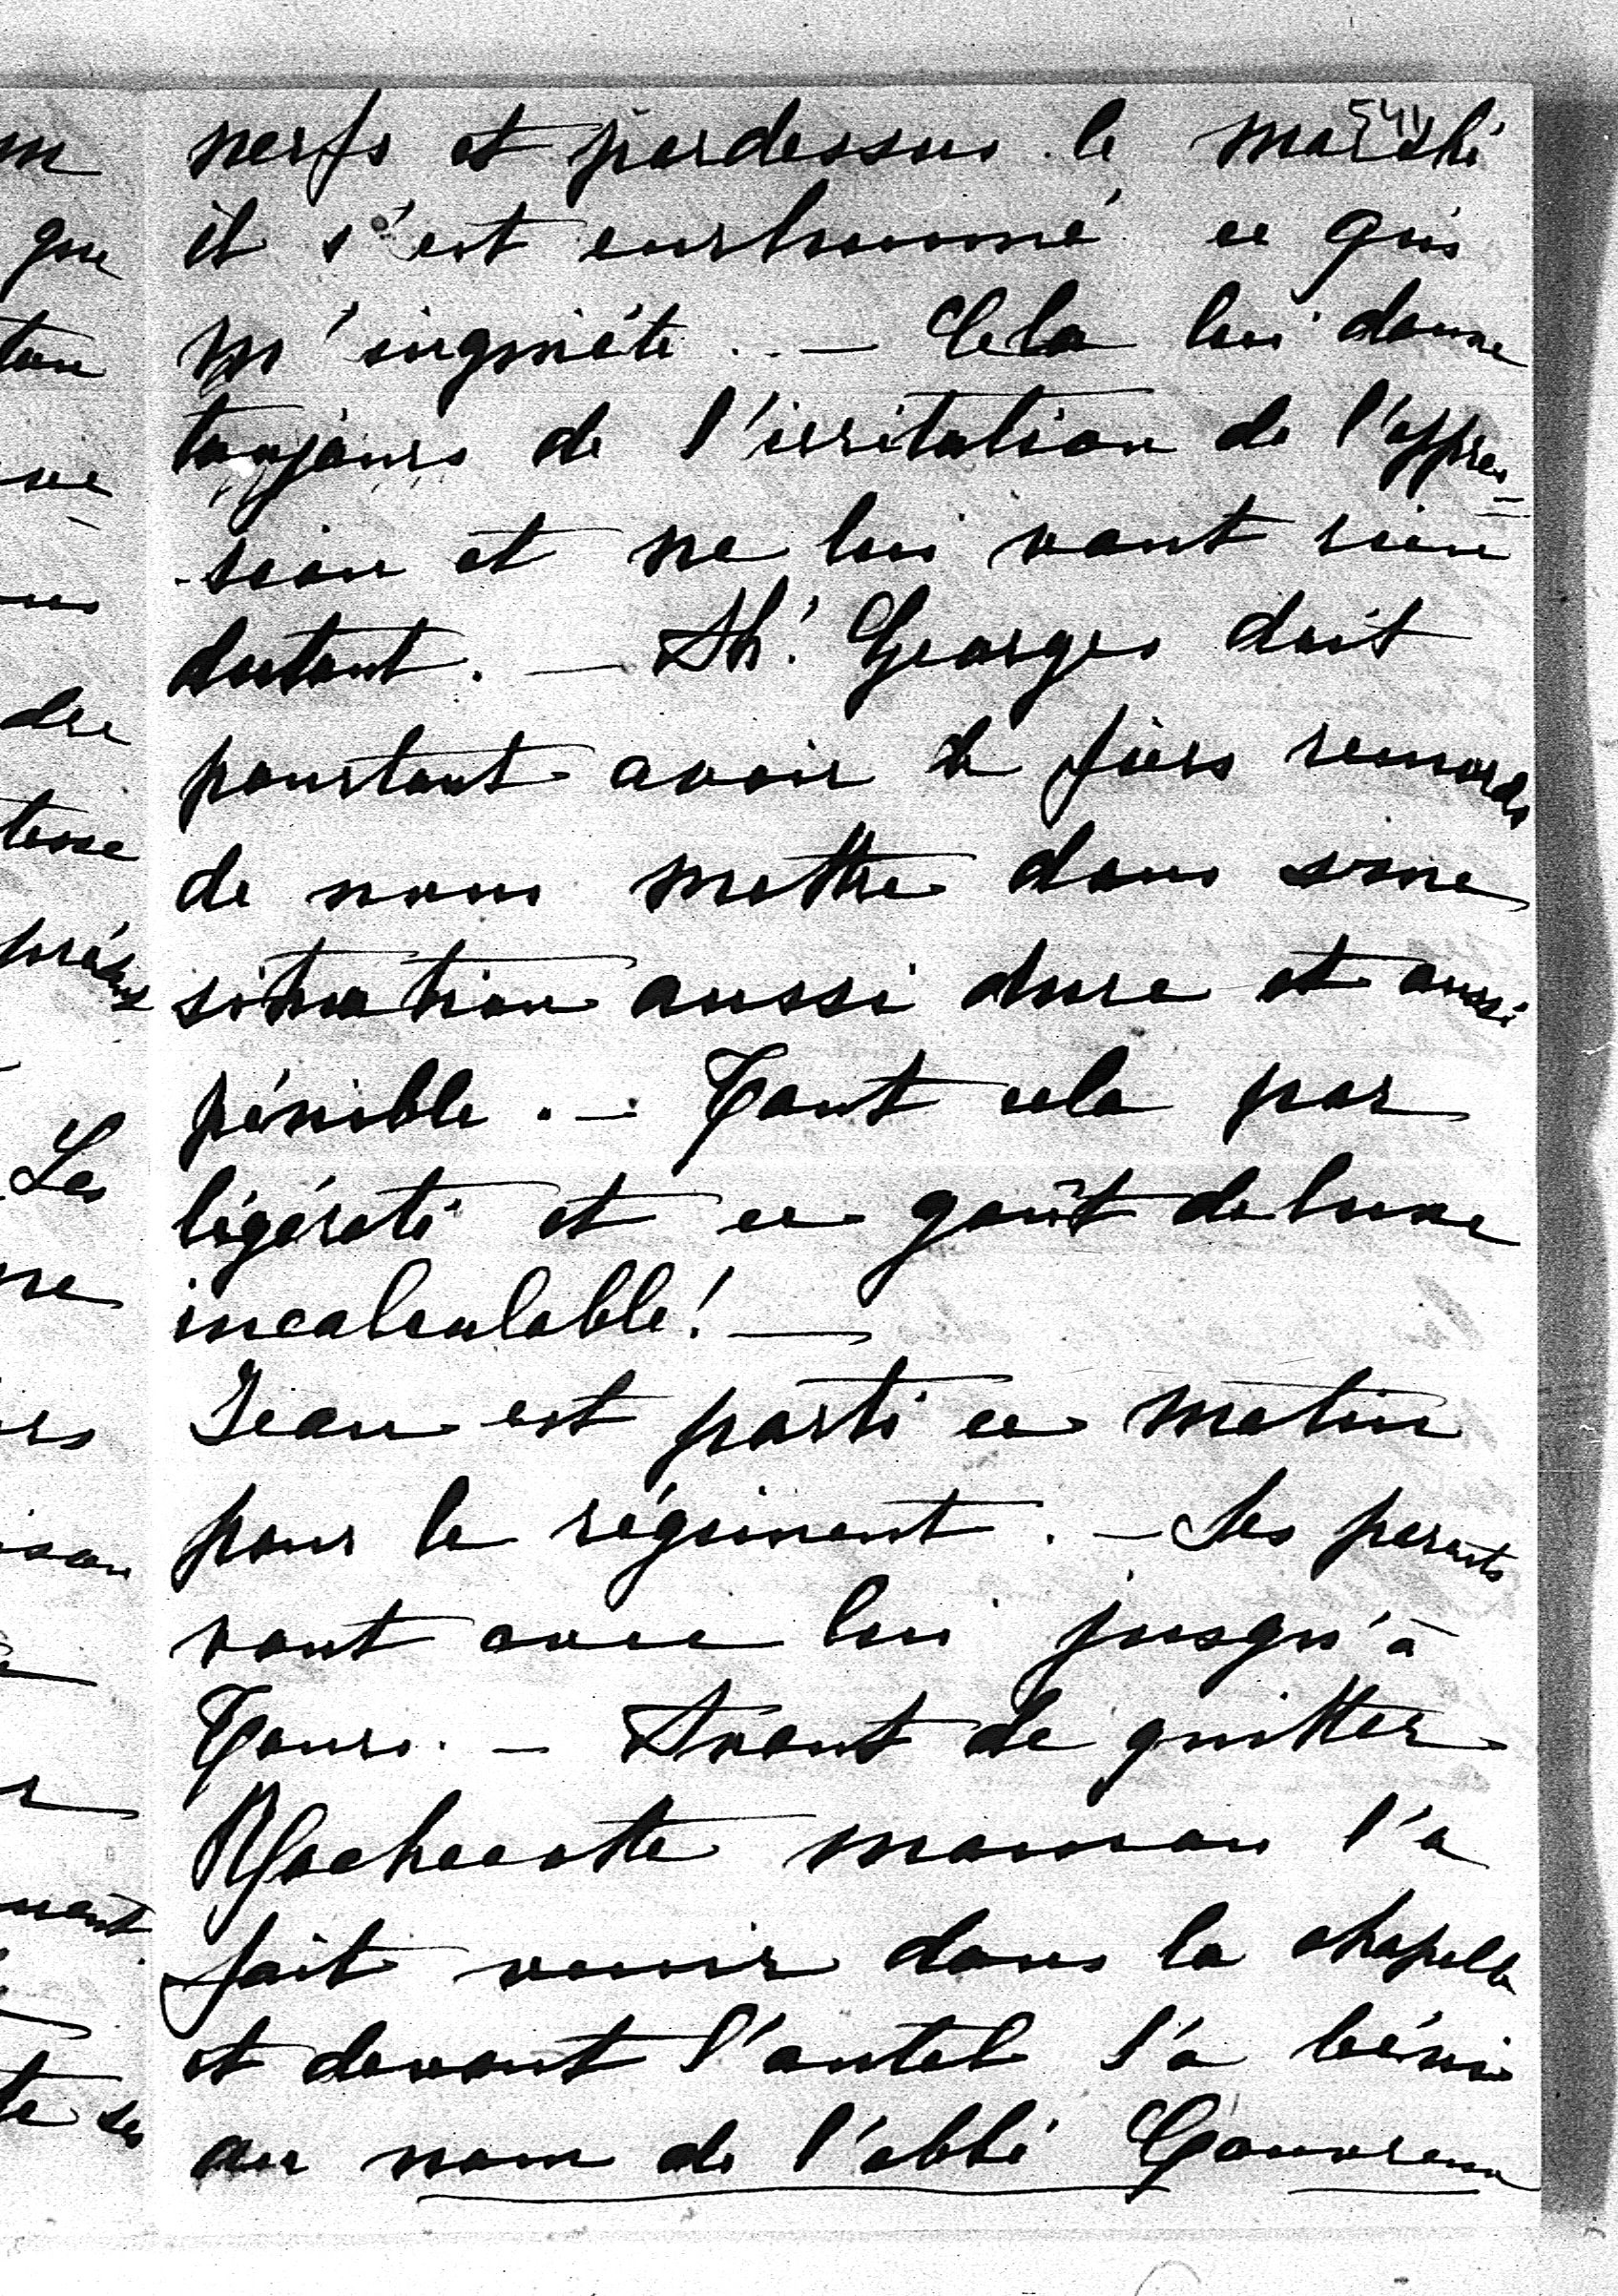 541
nerfs et pardessus le marché
il s'est enrhumé ce qui
m'inquiéte. — Cela lui donne
toujours de l'irritation de l'oppres-
-sion et ne lui vaut rien
dutout. — Ah! Georges doit
pourtant avoir de fiers remords
de nous mettre dans une
situation aussi dure et aussi
pénible. — Tout cela par
légéreté et ce goût de luxe
incalculable! —
Jean est parti ce matin
pour le régiment. — Ses parents
vont avec lui jusqu'à
Tours. — Avant de quitter
Rochecotte maman l'a
fait venir dans la chapelle
et devant l'autel l'a béni
au nom de l'abbé